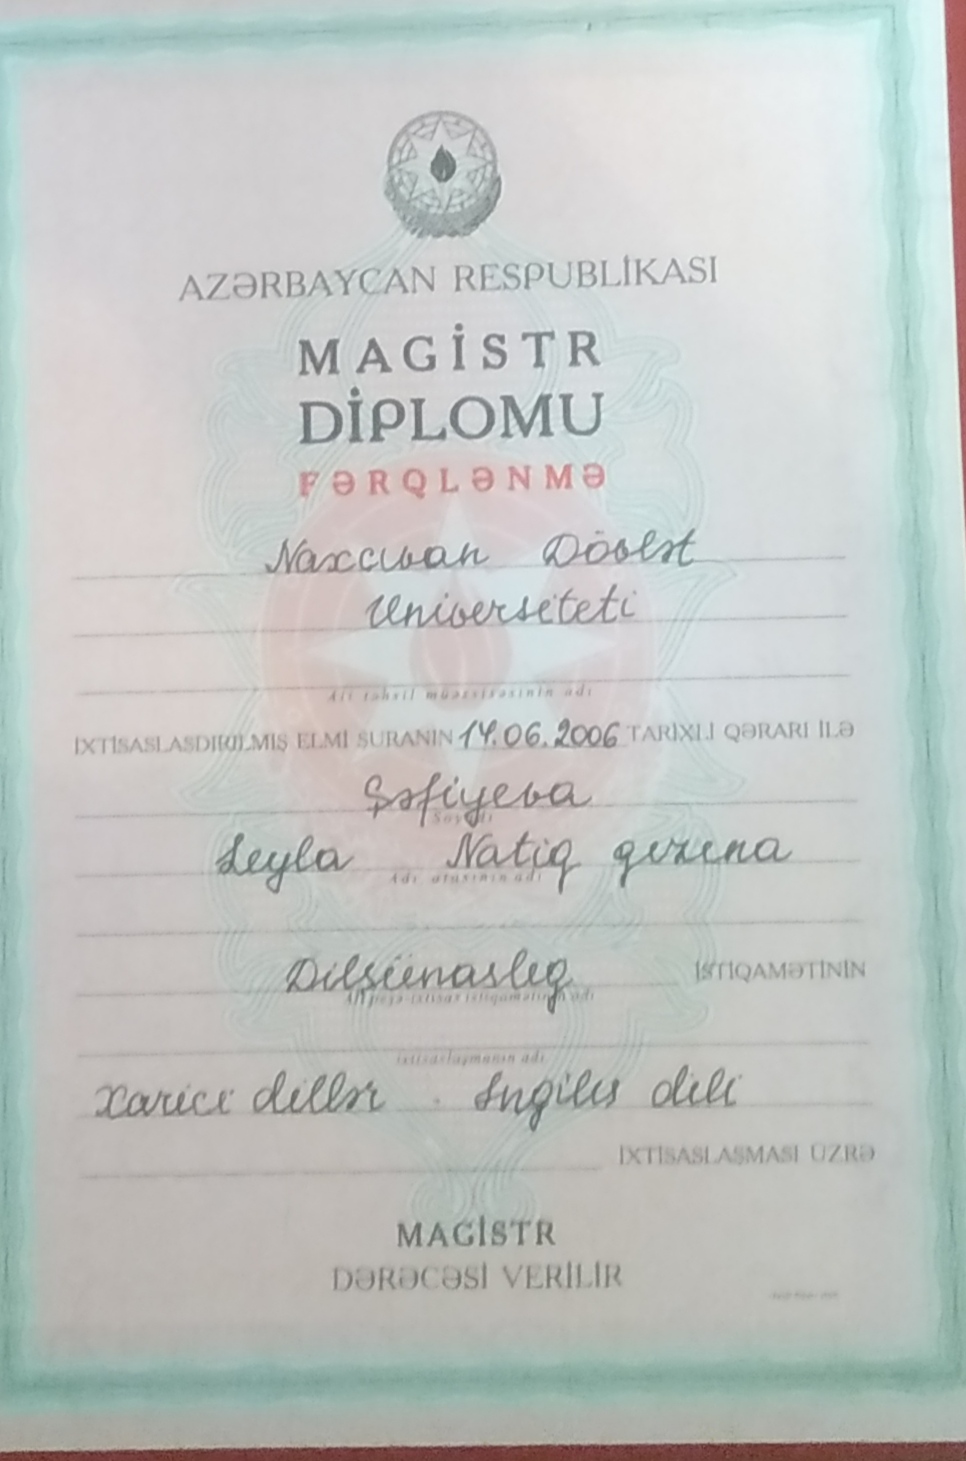 AZƏRBAYCAN RESPUBLİKASI
MAGİSTR
DİPLOMU
FƏRQLƏNMƏ
Naxçıvan Dövlət
Universiteti
Ali təhsil müəssisəsinin adı
İXTİSASLAŞDIRILMIŞ ELMİ ŞURANIN 14.06.2006 TARİXLİ QƏRARI İLƏ
Şəfiyeva
Soyadı
Leyla Natiq qızına
Adı atasının adı
Dilşünaslıq İSTİQAMƏTİNİN
ixtisaslaşmanın adı
Xarici dillər İngilis dili
İXTİSASLAŞMASI ÜZRƏ
MAGİSTR
DƏRƏCƏSİ VERİLİR